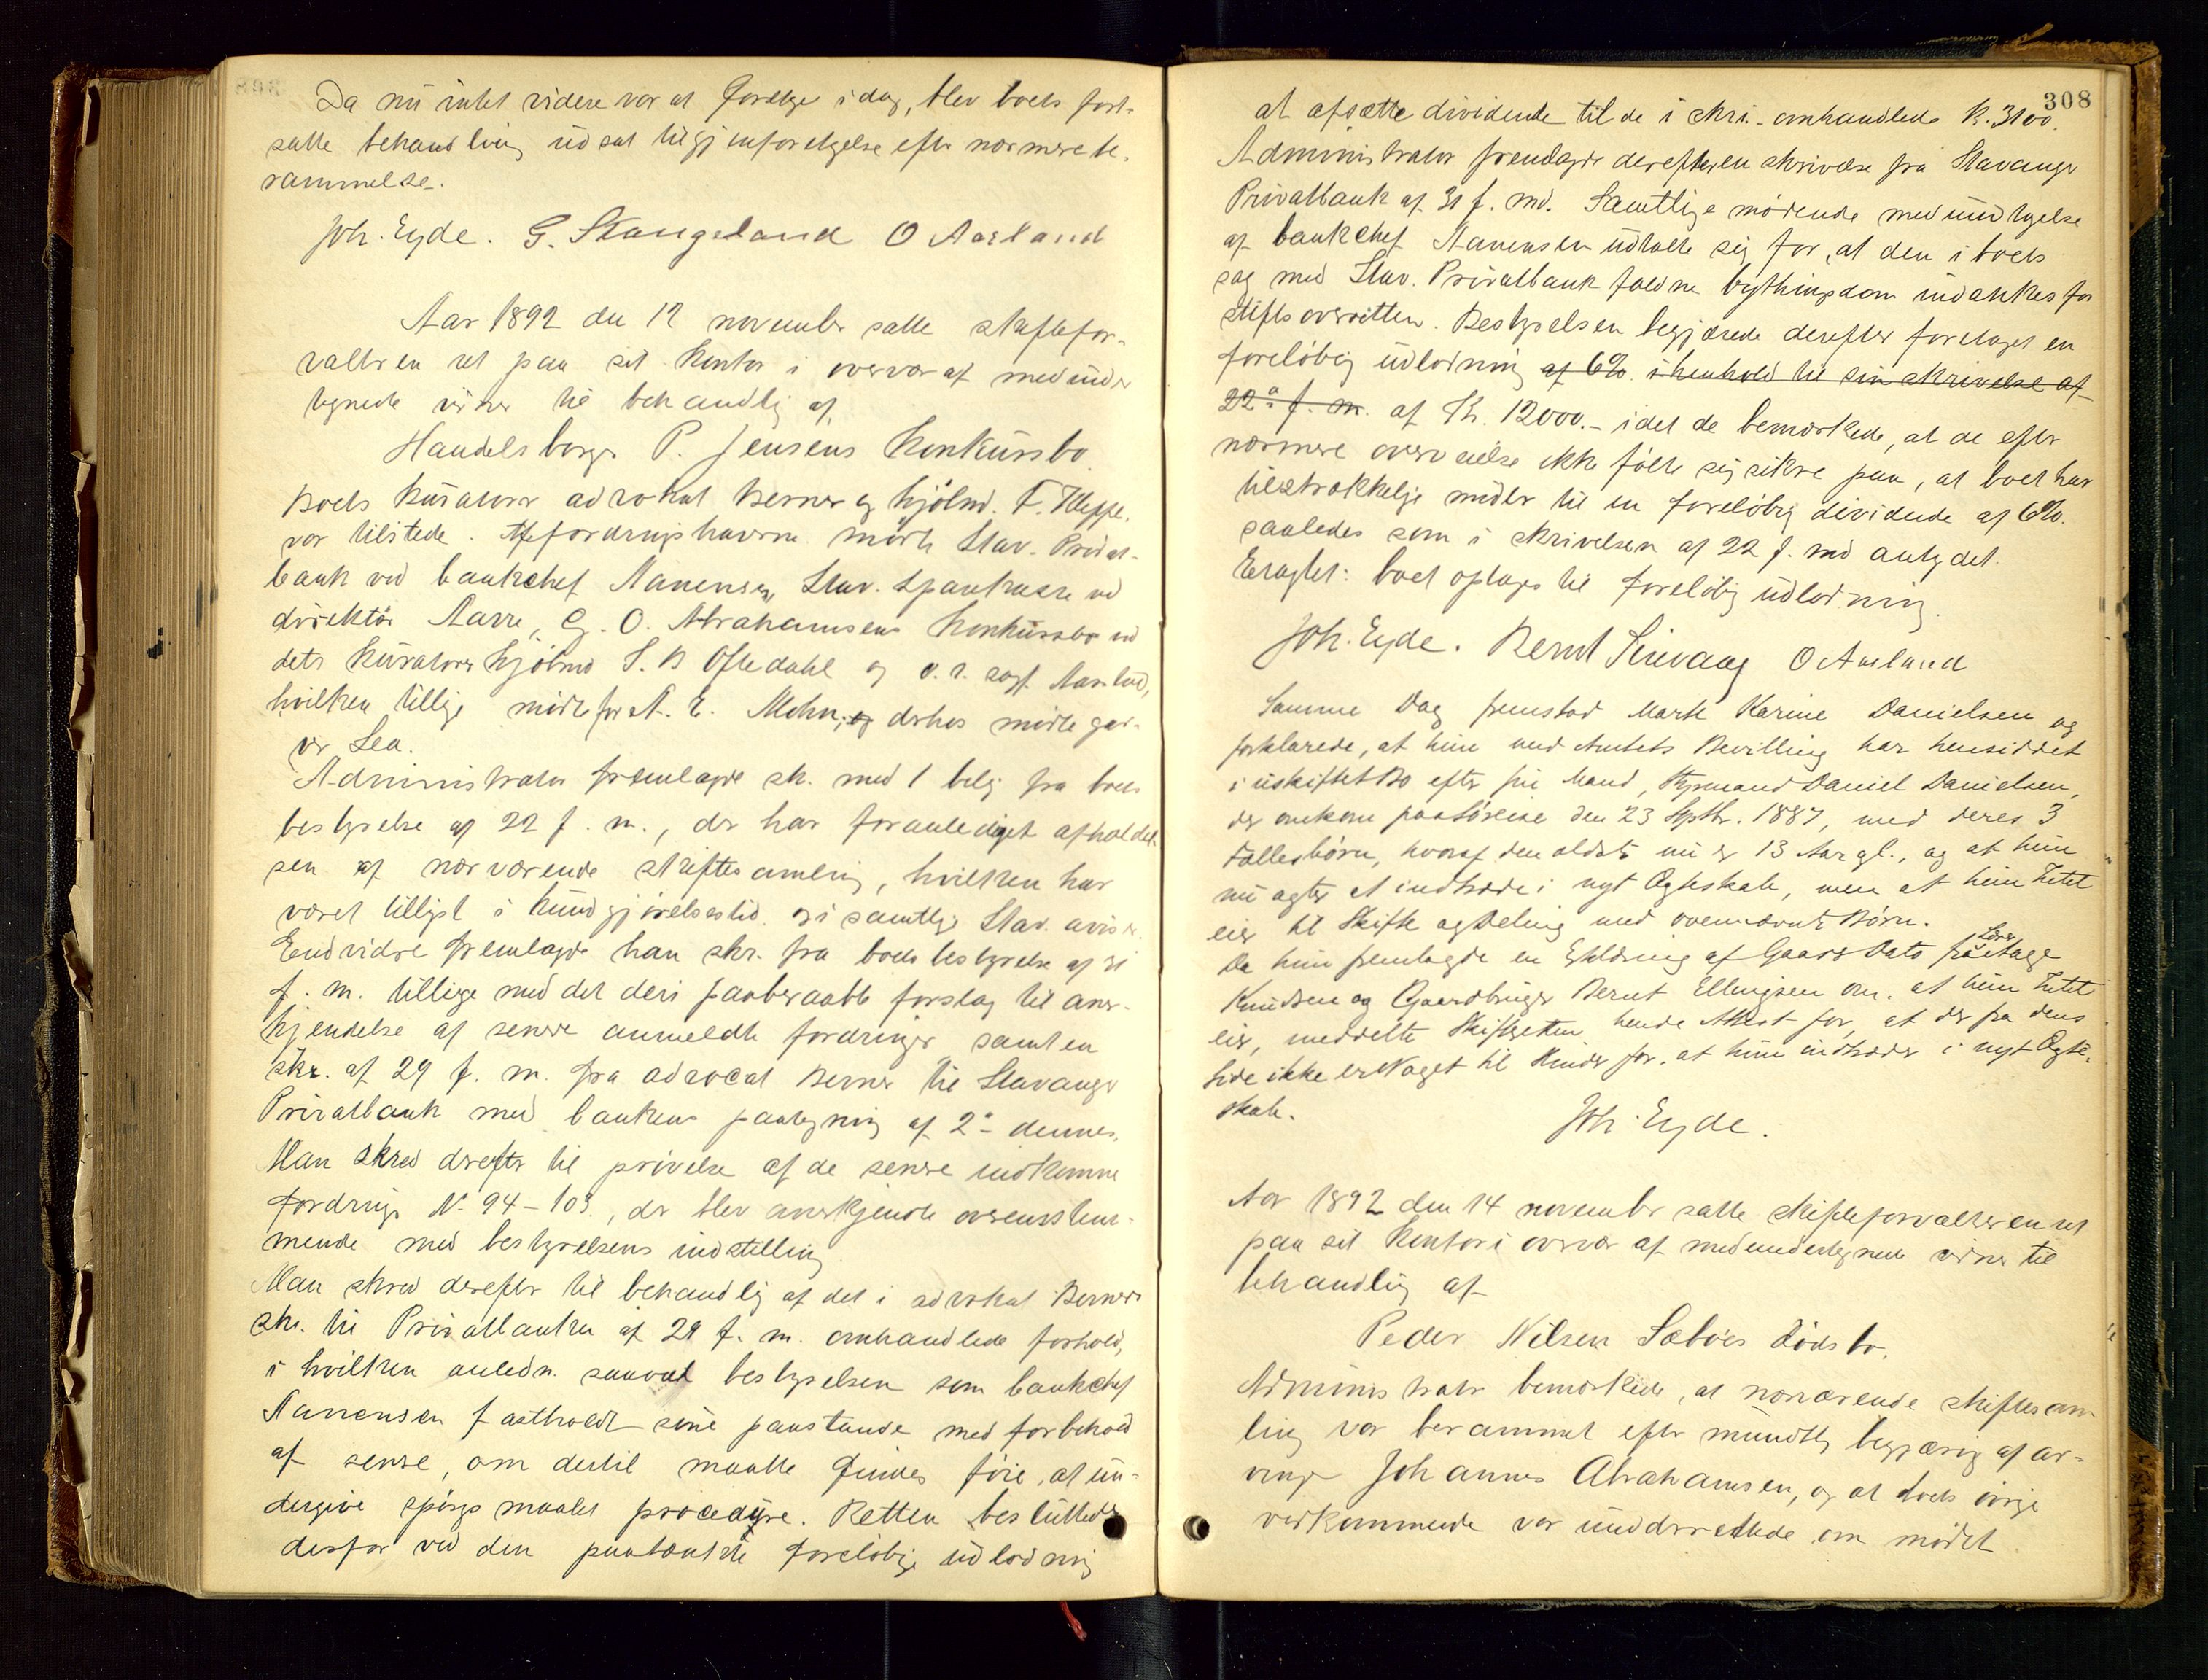 Da nu intet videre var at foretage i dag, blev boets fort-
satte behandling udsat til gjenforetagelse efter nærmere be-
rammelse.
Joh. Eyde. G. Stangeland O Aarland
Aar 1892 den 12 november satte skiftefor-
valteren ret paa sit kontor i overvær af medunder
tegnede vidner til behandlig af
Handelsborger P. Jensens Konkursbo.
Boets kuratorer advokat Berner og kjøbmd. T. Heppe.
var tilstede. Af fordringshaverne mødte Stav. Privat-
bank ved bankchef Nanensen, Stav. Sparekasse ved
direktør Aarre, G. O. Abrahamsens konkursbo ved
dets kurator kjøbmd S. B Oftedahl og o.r. sagf. Aarland,
hvilken tillige mødte for A. E. Mohn, og derhos mødte gar-
ver Lea.
Administrator fremlagde sk. med 1 bilag fra boets
bestyrelse af 22 f. m., der har foranlediget afholdel-
sen af nærværende skiftesamling, hvilken har
været tillyst i kundgjørelsestid. og i samtlige Stav. aviser.
Endvidre fremlagde han skr. fra boets bestyrelse af 31
f. m. tillige med det deri paaberaabte forslag til aner-
kjendelse af senere anmeldte fordringer samt en
skr. af 29 f. m. fra advocat Berner til Stavanger
Privatbank med bankens paategning af 2 dennes.
Man skred derefter til prøvelse af de senere indkomne
fordringer N. 94-103., der blev anerkjendte overensstem-
mende med bestyrelsens indstilling
Man skred derefter til behandlig af det i advokat Berners
skr. til Privatbanken af 29 f. m. omhandlede forhold,
i hvilken anledn. saavel bestyrelsen som bankchef
Nanensen fastholdt sine paastande med forbehold
af senere, om dertil maatte findes føie, at un-
dergive spørgsmaalet procedyre. Retten besluttede
derfor ved den paatænkte foreløbige udlodning
308
at afsætte dividende til de i skri. omhandlede k. 3100.
Administrator fremlagde derefter en skrivelse fra Stavanger
Privatbank af 31 f. md. Samtlige mødende med undtagelse
af bankchef Nanensen udtalte sig for, at den i boets
sag med Stav. Privatbank faldne bythingsdom indankes for
stiftsoverretten. Bestyrelsen begjærede derefter foretaget en
foreløbig udlodning af 6%. i henhold til sin skrivelse af
22 f. m. af Kr. 12000.- idet de bemærkede, at de efter
nærmere overveielse ikke følte sig sikre paa, at boet har
tilstrækkelige midler til en foreløbig dividende af 6%.
saaledes som i skrivelsen af 22 f. md antydet.
Eragtet: boet optages til foreløbig udlodning.
Joh. Eyde. Bernt Sinvaag O Aarland
Samme Dag fremstod Marte Karine Danielsen og
forklarede, at hun med Amtets Bevilling har hensiddet
i uskiftet Bo efter sin Mand, Styrmand Daniel Danielsen,
der omkom paa Søreise den 23 Septbr. 1887, med deres 3
Fællesbørn, hvoraf den ældste nu er 13 Aar gl., og at hun
nu agter at indtræde i nyt Ægteskab, men at hun Intet
eier til Skifte og Deling med ovennævnte Børn.
Da hun fremlagde en Erklæring af Gaars Dato fra Lærer Tage
Knudsen og Gaardbruger Bernt Ellingsen om. at hun Intet
eier, meddelte Skifteretten hende Attest for, at der fra dens
Side ikke er Noget til Hinder for. at hun indtræder i nyt Ægte-
skab.
Joh. Eyde.
Aar 1892 den 14 november satte skifteforvalteren ret
paa sit kontor i overvær af medundertegnede vidner til
behandlig af
Peder Nilsen Sæbøes Dødsbo.
Administrator bemærkede, at nærværende skiftesam
ling var berammet efter mundtlig begjæring af ar-
vinge Johannes Abrahamsen, og at boets øvrige
vedkommende var underrettede om mødet